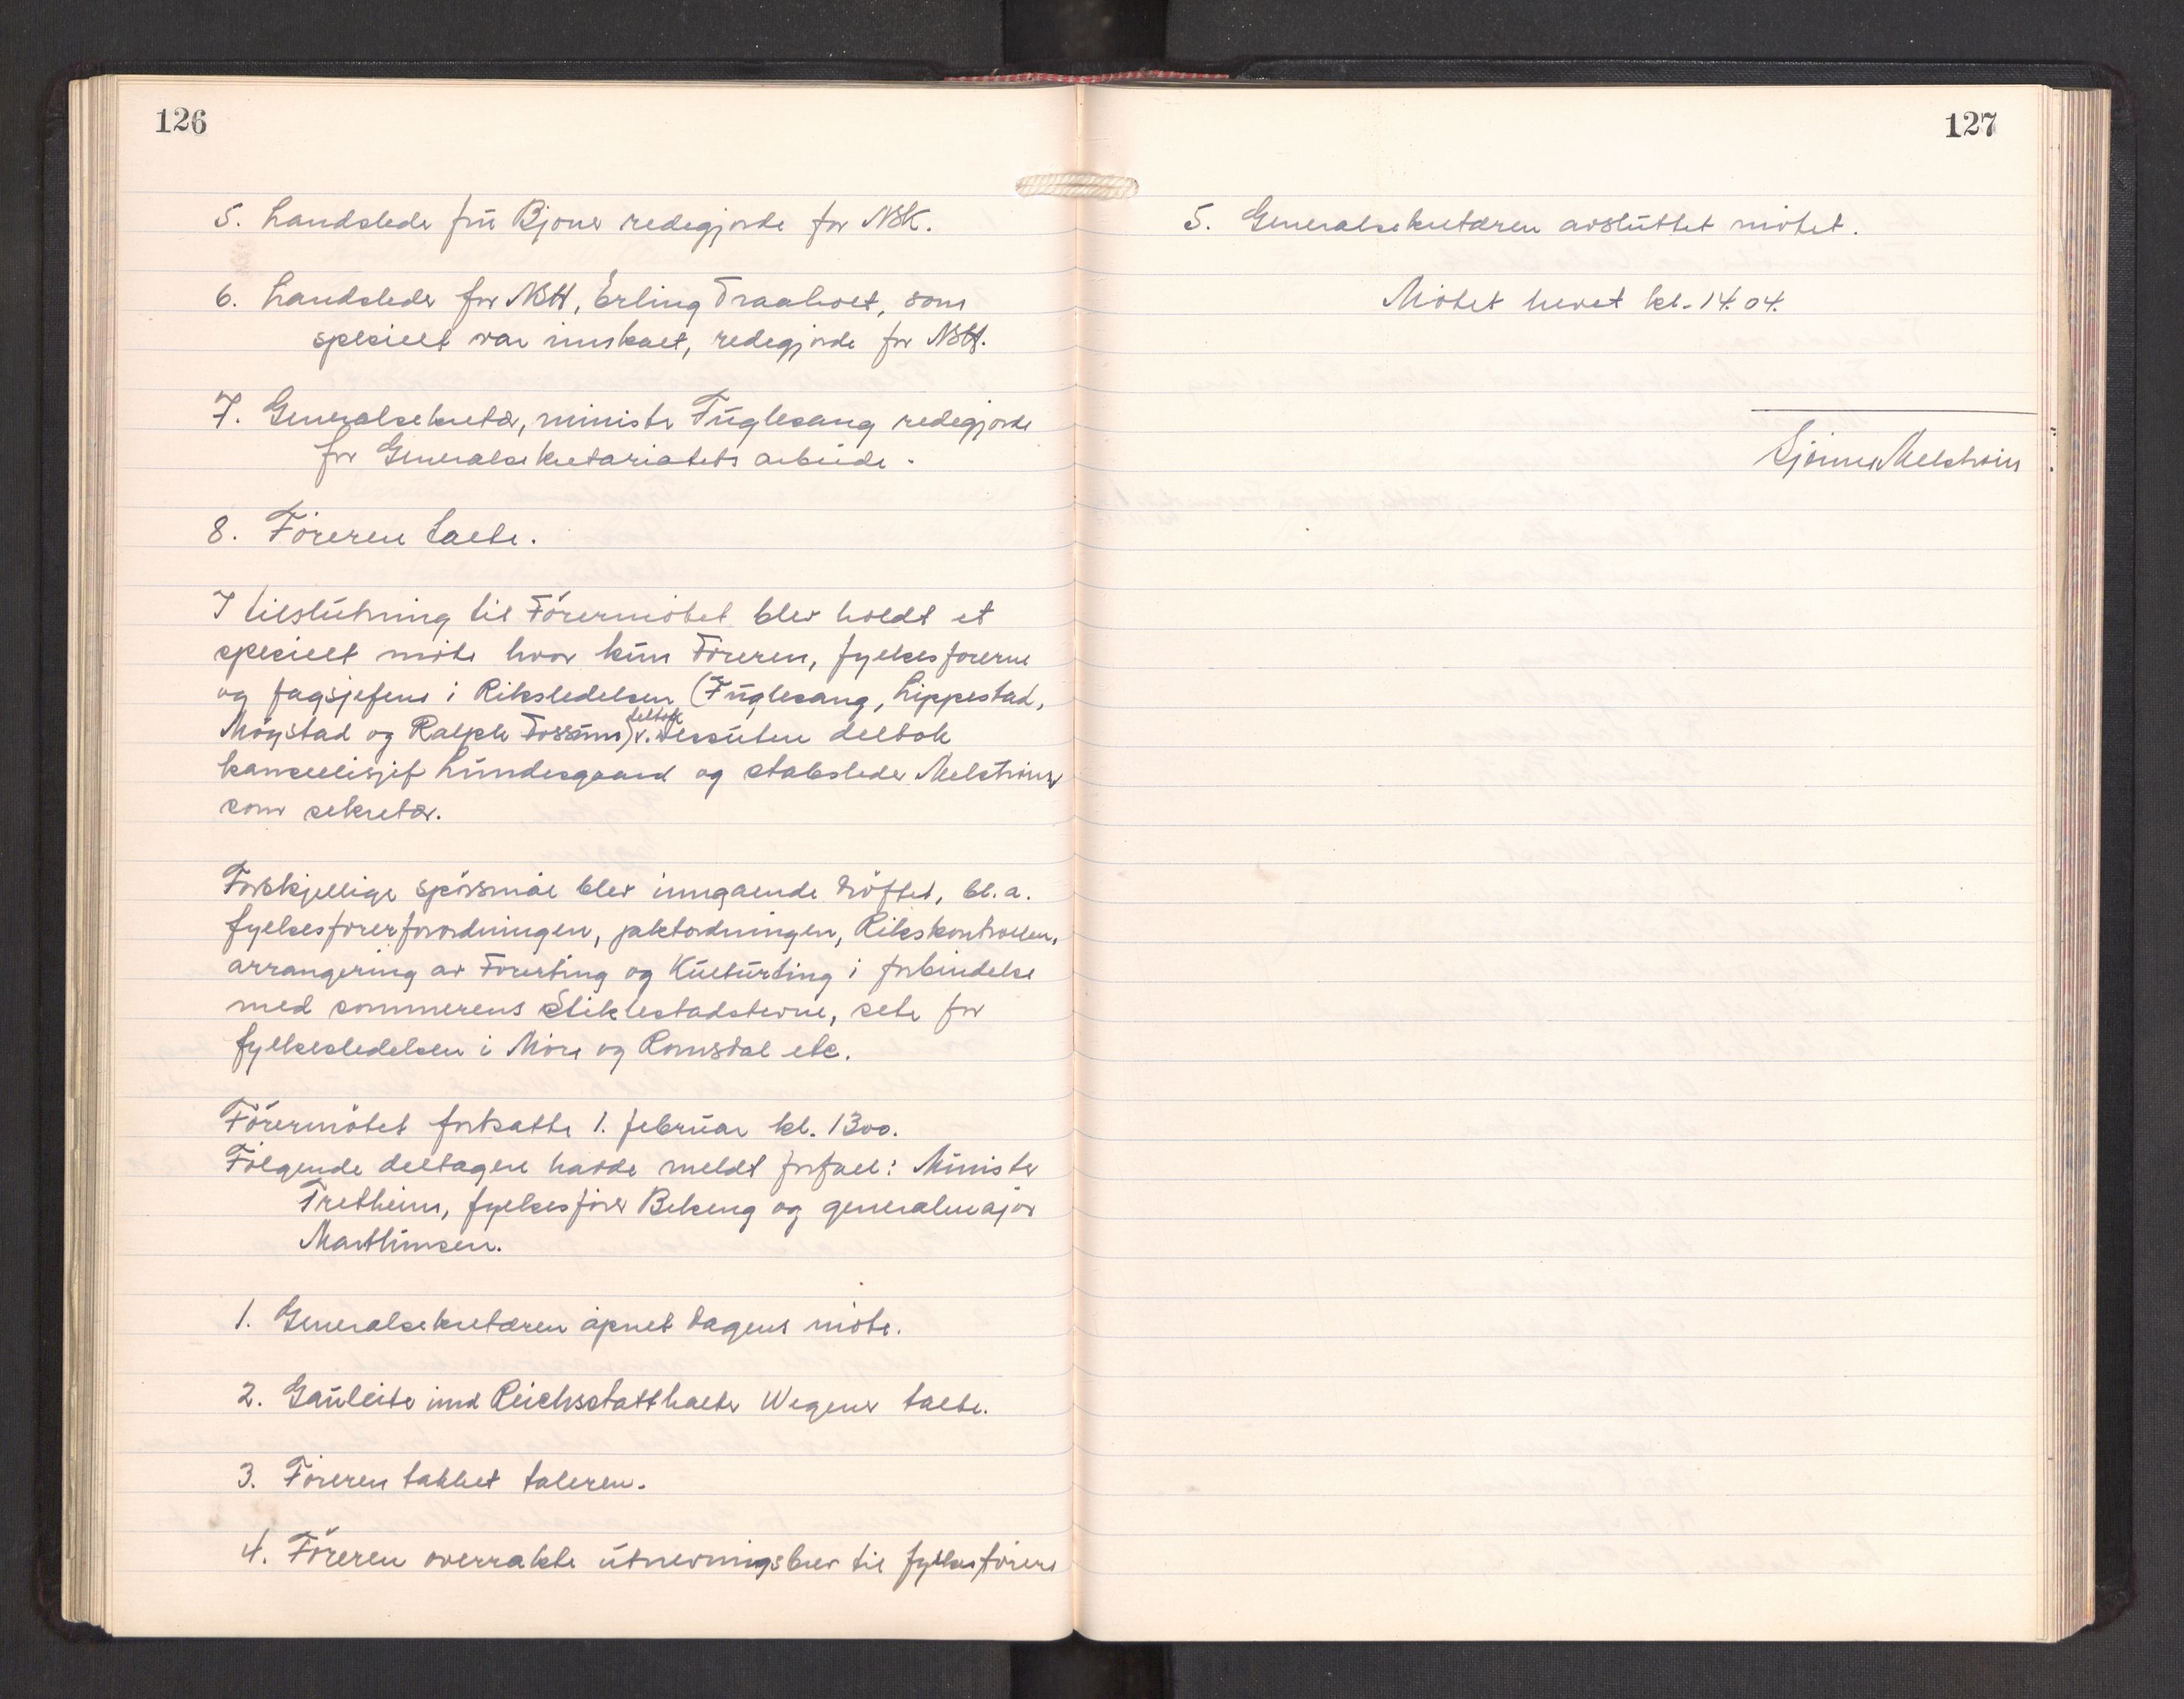 126
5. Landsleder fru Bjoner redegjorde for NSK.
6. Landsleder for NSH, Erling Traaholt, som
specielt var innkalt, redegjorde for NSH.
7. Generalsekretær, minister Fuglesang redegjorde
for Generalsekretariatets arbeide.
8. Föreren talte.
I tilslutning til Förermötet blev holdt et
specielt möte hvor kun Föreren, fylkesförerne
og fagsjefene i Riksledelsen (Fuglesang, Lippestad,
Möystad og Ralph Fossum) deltok. Dessuten deltok
kansellisjef Lundesgaard og stabsleder Melström
som sekretær.
Forskjellige spörsmål blev inngaende dröftet, bl.a.
fylkesförerforordningen, jaktordningen, Rikskontrollen,
arrangering av Förerting og Kulturting i forbindelse
med sommerens Stiklestadstevne, sete for
fylkesledelsen i Möre og Romsdal etc.
Förermötet fortsatte 1. februar kl. 1300.
Fölgende deltagere hadde meldt forfall: Minister
Fretheim, fylkesförer Bekeng og generalmajor
Marthinsen.
1. Generalsekretæren åpnet dagens möte.
2. Gauleiter und Reichsstatthalter Wegener talte.
3. Föreren takket taleren.
4. Föreren overrakte utnevningsbrev til fylkesförere
127
5. Generalsekretæren avsluttet mötet.
Mötet hevet kl. 14.04.
Melström